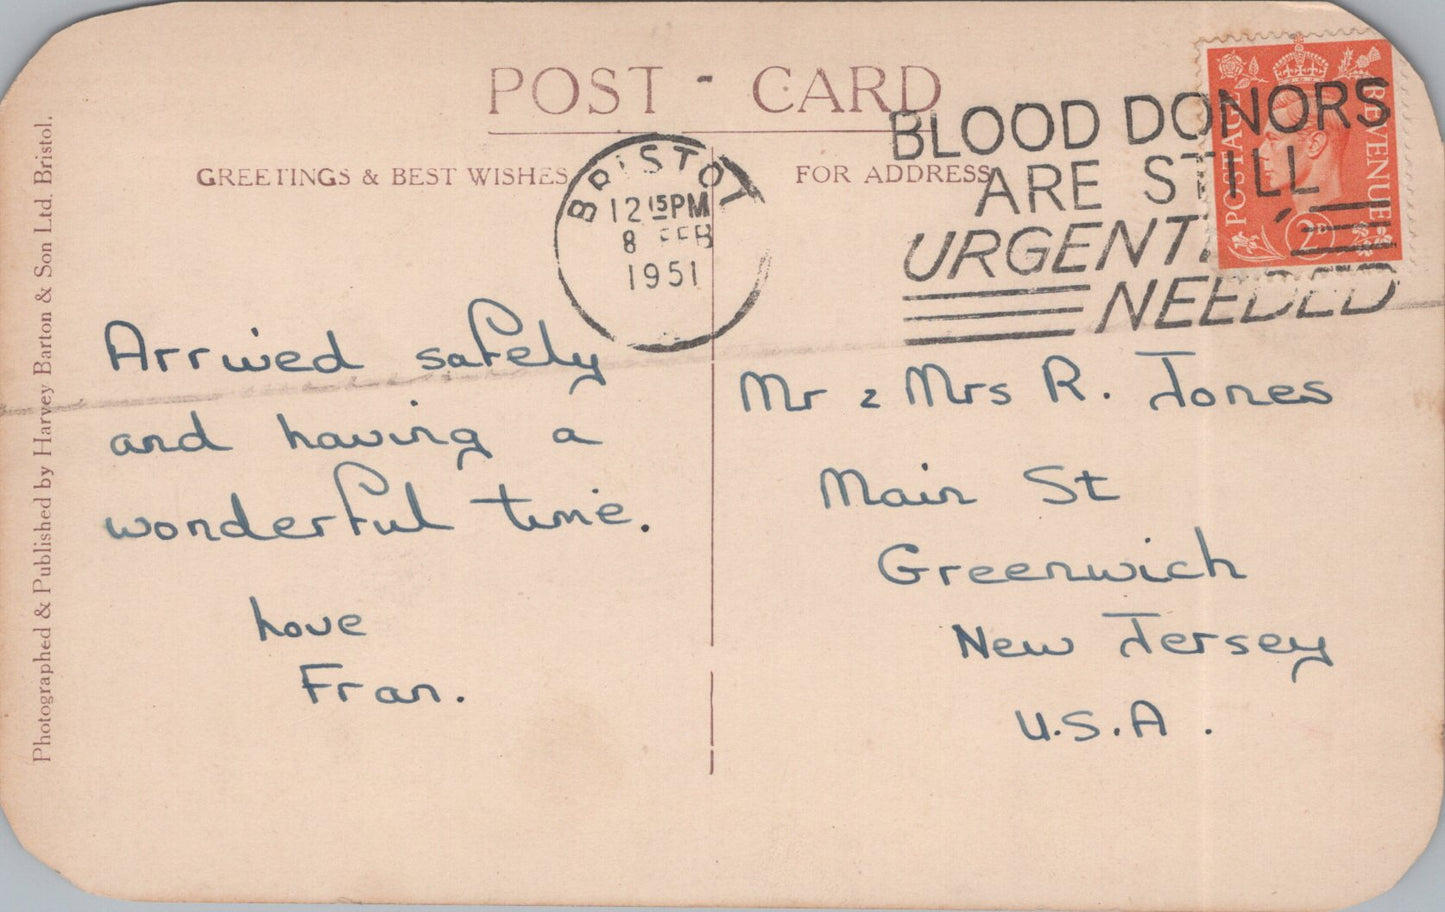 POST - CARD
GREETINGS & BEST WISHES
FOR ADDRESS
BRISTOL
12 15 PM
8 FEB
1951
BLOOD DONORS
ARE STILL
URGENTLY
NEEDED
POSTAGE
REVENUE
2D
Arrived safely
and having a
wonderful time.
Love
Fran.
Mr & Mrs R. Jones
Main St
Greenwich
New Jersey
U.S.A.
Photographed & Published by Harvey Barton & Son Ltd. Bristol.